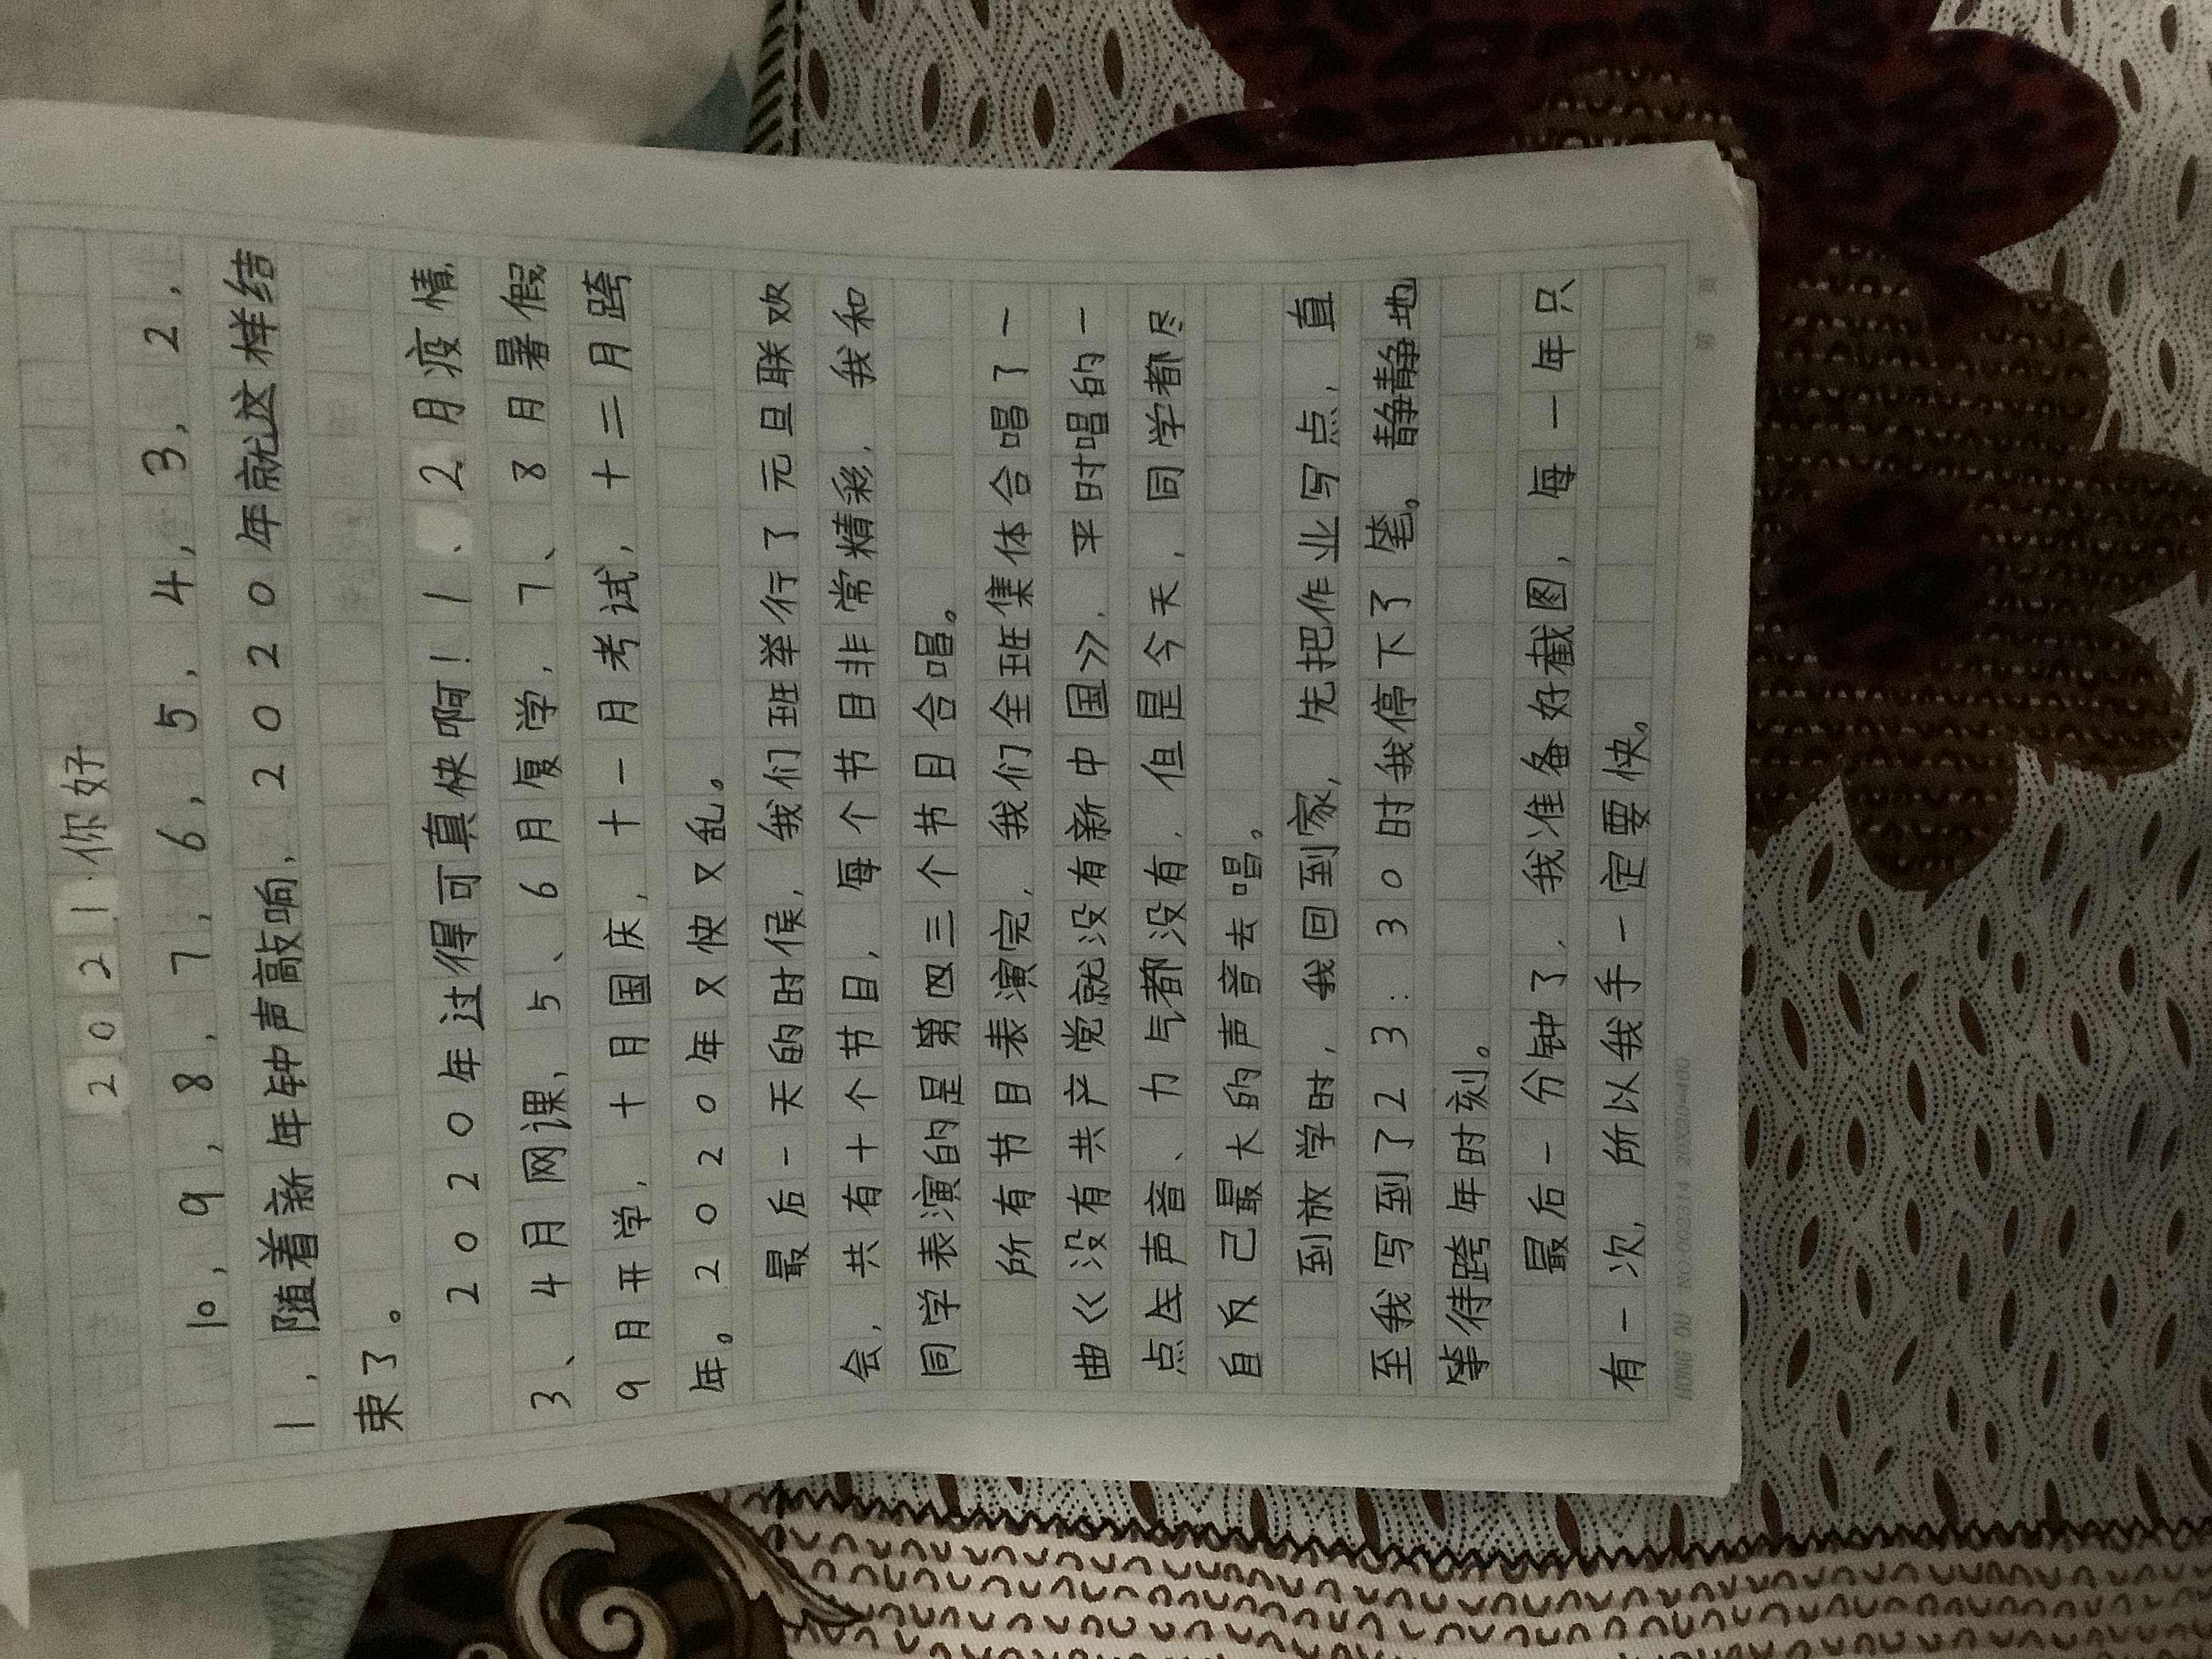 2021·你好
10,9,8,7,6,5,4,3,2,
1,随着新年钟声敲响,2020年就这样结
束了。
2020年过得可真快啊!1、2月疫情,
3、4月网课,5、6月复学,7、8月暑假
9月开学,十月国庆,十一月考试,十二月跨
年。2020年又快又乱。
最后一天的时侯,我们班举行了元旦联欢
会,共有十个节目,每个节目非常精彩,我和
同学表演的是第四三个节目合唱。
所有节目表演完,我们全班集体合唱了一
曲《没有共产党就没有新中国》,平时唱的一
点左声音、力气都没有,但是今天,同学都尽
自反己最大的声音去唱。
到放学时,我回到家,先把作业写点,直
至我写到了23:30时我停下了笔。静静地
等待跨年时刻。
最后一分钟了,我准备好截图,每一年只
有一次,所以我手一定要快。
MONG DU NO.062314 20X20=400
第 页